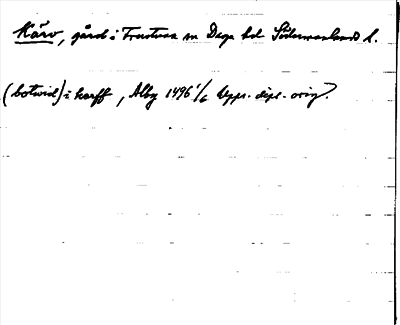 Kärv, gård i Frustuna sn Daga hd Södermanlands l.
(botvid) i karff, Alby 1496 1/6 Uppr. dipl. orig.